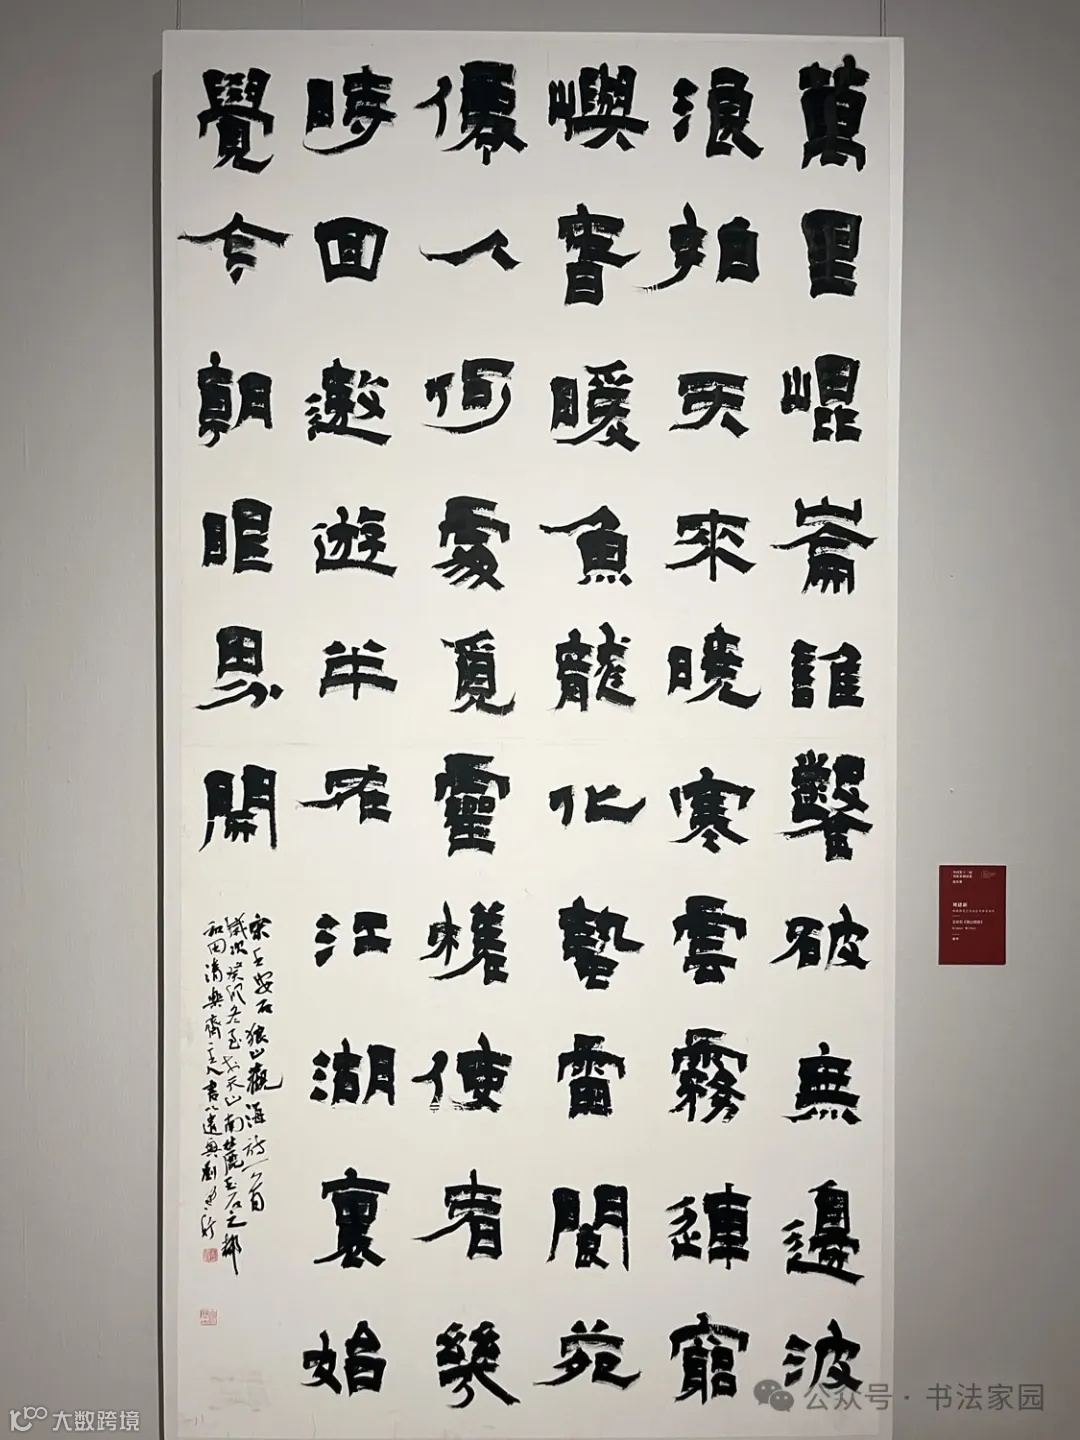 萬里崐崙誰鑿破無邊波
浪拍天來曉寒雲霧連窮
嶼春暖魚龍化蟄雷閬苑
僊人何處覓靈槎使者幾
時回遨遊半在江湖裏始
覺今朝眼界開
宋王安石狼山觀海詩一首
歲次癸卯冬至於天山南麓玉石之都
和田清樂齋主人書以遣興劉
公众号 · 书法家园
大数跨境